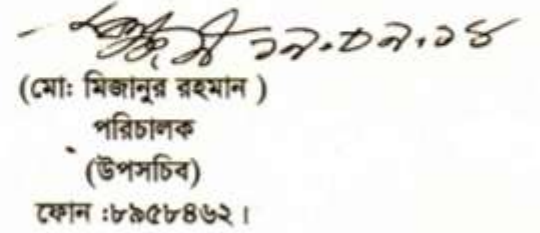 ১৯.০৯.১৪
(মো: মিজানুর রহমান )
পরিচালক
(উপসচিব)
ফোন :৮৯৫৮৪৬২।